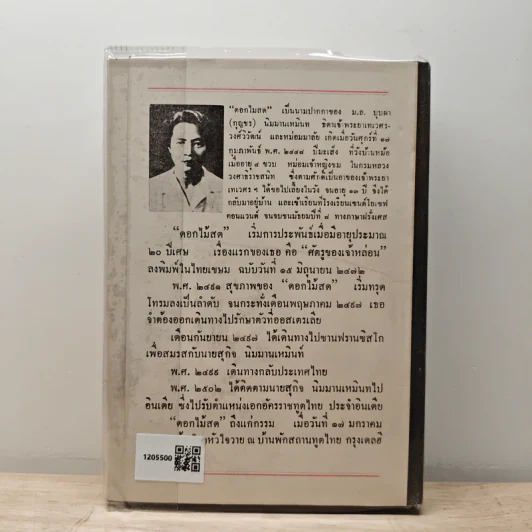 "ดอกไม้สด" เป็นนามปากกาของ ม.ล. บุบผา
(กุญชร) นิมมานเหมินท ธิดาเจ้าพระยาเทเวศร-
วงศ์วิวัฒน์ และหม่อมมาลัย เกิดเมื่อวันศุกร์ที่ ๑๗
กุมภาพันธ์ พ.ศ. ๒๔๔๘ ปีมะเส็ง ที่วังบ้านหม้อ
เมื่ออายุ ๔ ขวบ หม่อมเจ้าหญิงขม ในกรมหลวง
วงศาธิราชสนิท ซึ่งตามศักดิ์เป็นอาของเจ้าพระยา
เทเวศร ฯ ได้ขอไปเลี้ยงในวัง จนอายุ ๑๓ ปี จึงได้
กลับมาอยู่บ้าน และเข้าเรียนที่โรงเรียนเซนต์โยเซฟ
คอนแวนต์ จนจบชั้นมัธยมปีที่ ๘ ทางภาษาฝรั่งเศส
"ดอกไม้สด" เริ่มการประพันธ์เมื่อมีอายุประมาณ
๒๐ ปีเศษ เรื่องแรกของเธอ คือ "ศัตรูของเจ้าหล่อน"
ลงพิมพ์ในไทยเขษม ฉบับวันที่ ๑๕ มิถุนายน ๒๔๗๒
พ.ศ. ๒๔๙๑ สุขภาพของ "ดอกไม้สด" เริ่มทรุด
โทรมลงเป็นลำดับ จนกระทั่งเดือนพฤษภาคม ๒๔๙๗ เธอ
จำต้องออกเดินทางไปรักษาตัวที่ออสเตรเลีย
เดือนกันยายน ๒๔๙๗ ได้เดินทางไปซานฟรานซิสโก
เพื่อสมรสกับนายสุกิจ นิมมานเหมินท์
พ.ศ. ๒๔๙๙ เดินทางกลับประเทศไทย
พ.ศ. ๒๕๐๒ ได้ติดตามนายสุกิจ นิมมานเหมินทไป
อินเดีย ซึ่งไปรับตำแหน่งเอกอัครราชทูตไทย ประจำอินเดีย
"ดอกไม้สด" ถึงแก่กรรม เมื่อวันที่ ๑๗ มกราคม
หัวใจวาย ณ บ้านพักสถานทูตไทย กรุงเดลฮี
1205500